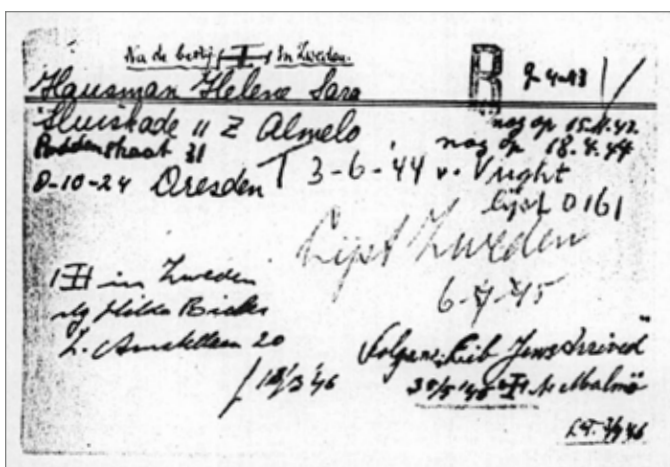 Na de bevrij in Zweden.
R 9-4-43
Hausman Helene Sara
Sluiskade 11 Z Almelo
nog op 15.11.43.
nog op 18.4.44
straat 31
8-10-24 Dresden T 3-6-'44 v. Vught
lijst 0161
Lijst Zweden
6-7-45
in Zweden
Hilda
Z. Amstellaan 20
/ 18/3 '46
Volgens Jews Arrived
30/5 '45 Malmö